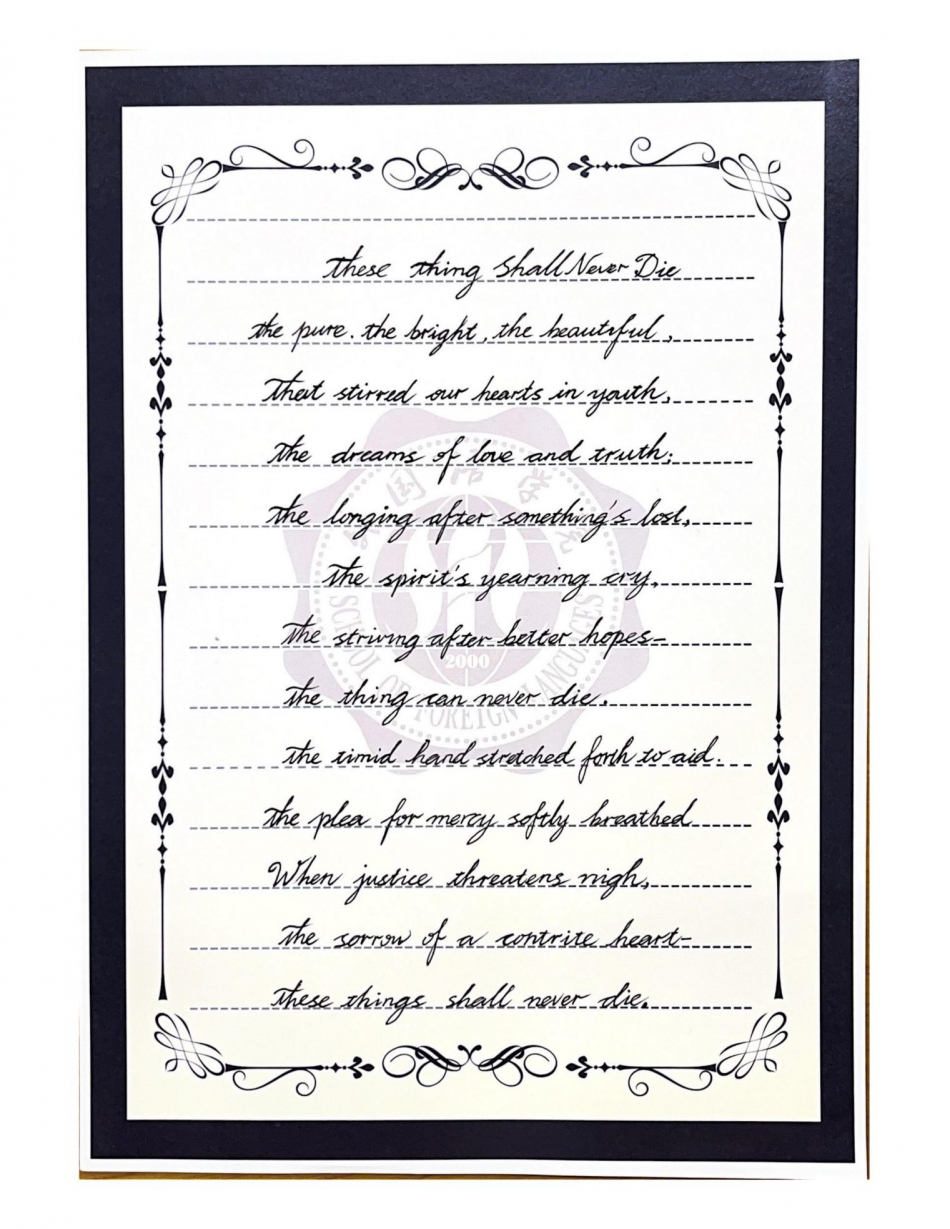 These thing Shall Never Die
the pure. the bright, the beautiful,
That stirred our hearts in youth,
the dreams of love and truth;
the longing after something's lost,
the spirit's yearning cry,
the striving after better hopes-
the thing can never die.
the timid hand stretched forth to aid.
the plea for mercy softly breathed
When justice threatens nigh,
the sorrow of a contrite heart-
these things shall never die.
国 学
SCHOOL OF FOREIGN LANGUAGES
2000